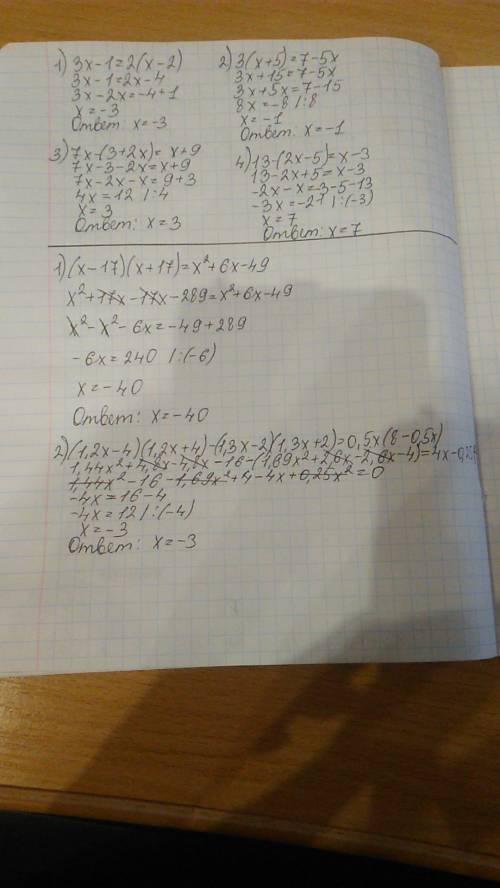 1) 3x-1=2(x-2)
3x-1=2x-4
3x-2x=-4+1
x=-3
Ответ: x=-3
2) 3(x+5)=7-5x
3x+15=7-5x
3x+5x=7-15
8x=-8 |:8
x=-1
Ответ: x=-1
3) 7x-(3+2x)=x+9
7x-3-2x=x+9
7x-2x-x=9+3
4x=12 |:4
x=3
Ответ: x=3
4) 13-(2x-5)=x-3
13-2x+5=x-3
-2x-x=-3-5-13
-3x=-21 |:(-3)
x=7
Ответ: x=7
1) (x-17)(x+17)=x²+6x-49
x²+17x-17x-289=x²+6x-49
x²-x²-6x=-49+289
-6x=240 |:(-6)
x=-40
Ответ: x=-40
2) (1,2x-4)(1,2x+4)-(1,3x-2)(1,3x+2)=0,5x(8-0,5x)
1,44x²+4,8x-4,8x-16-(1,69x²+2,6x-2,6x-4)=4x-0,25
1,44x²-16-1,69x²+4-4x+0,25x²=0
-4x=16-4
-4x=12 |:(-4)
x=-3
Ответ: x=-3